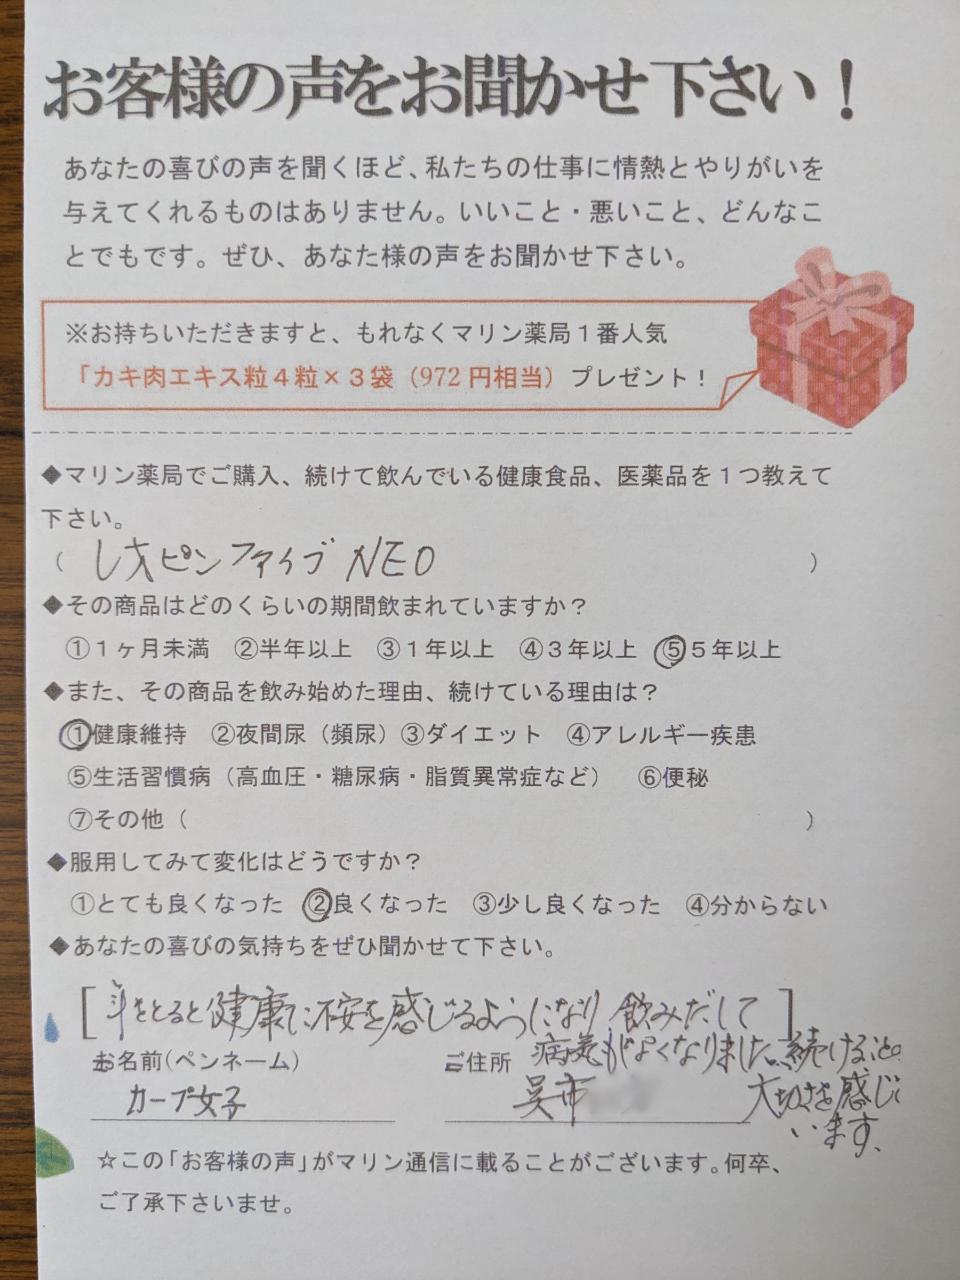 お客様の声をお聞かせ下さい！
あなたの喜びの声を聞くほど、私たちの仕事に情熱とやりがいを
与えてくれるものはありません。いいこと・悪いこと、どんなこ
とでもです。ぜひ、あなた様の声をお聞かせ下さい。
※お持ちいただきますと、もれなくマリン薬局１番人気
「カキ肉エキス粒４粒×３袋（972円相当）プレゼント！
◆マリン薬局でご購入、続けて飲んでいる健康食品、医薬品を１つ教えて
下さい。
（ レオピンファイブNEO ）
◆その商品はどのくらいの期間飲まれていますか？
①１ヶ月未満 ②半年以上 ③１年以上 ④３年以上 ⑤５年以上
◆また、その商品を飲み始めた理由、続けている理由は？
①健康維持 ②夜間尿（頻尿）③ダイエット ④アレルギー疾患
⑤生活習慣病（高血圧・糖尿病・脂質異常症など） ⑥便秘
⑦その他（ ）
◆服用してみて変化はどうですか？
①とても良くなった ②良くなった ③少し良くなった ④分からない
◆あなたの喜びの気持ちをぜひ聞かせて下さい。
[年をとると健康に不安を感じるようになり 飲みだして]
病気もがよくなりました。続けること。
大切さを感じて
います。
お名前(ペンネーム) ご住所
カープ女子 呉市
☆この「お客様の声」がマリン通信に載ることがございます。何卒、
ご了承下さいませ。